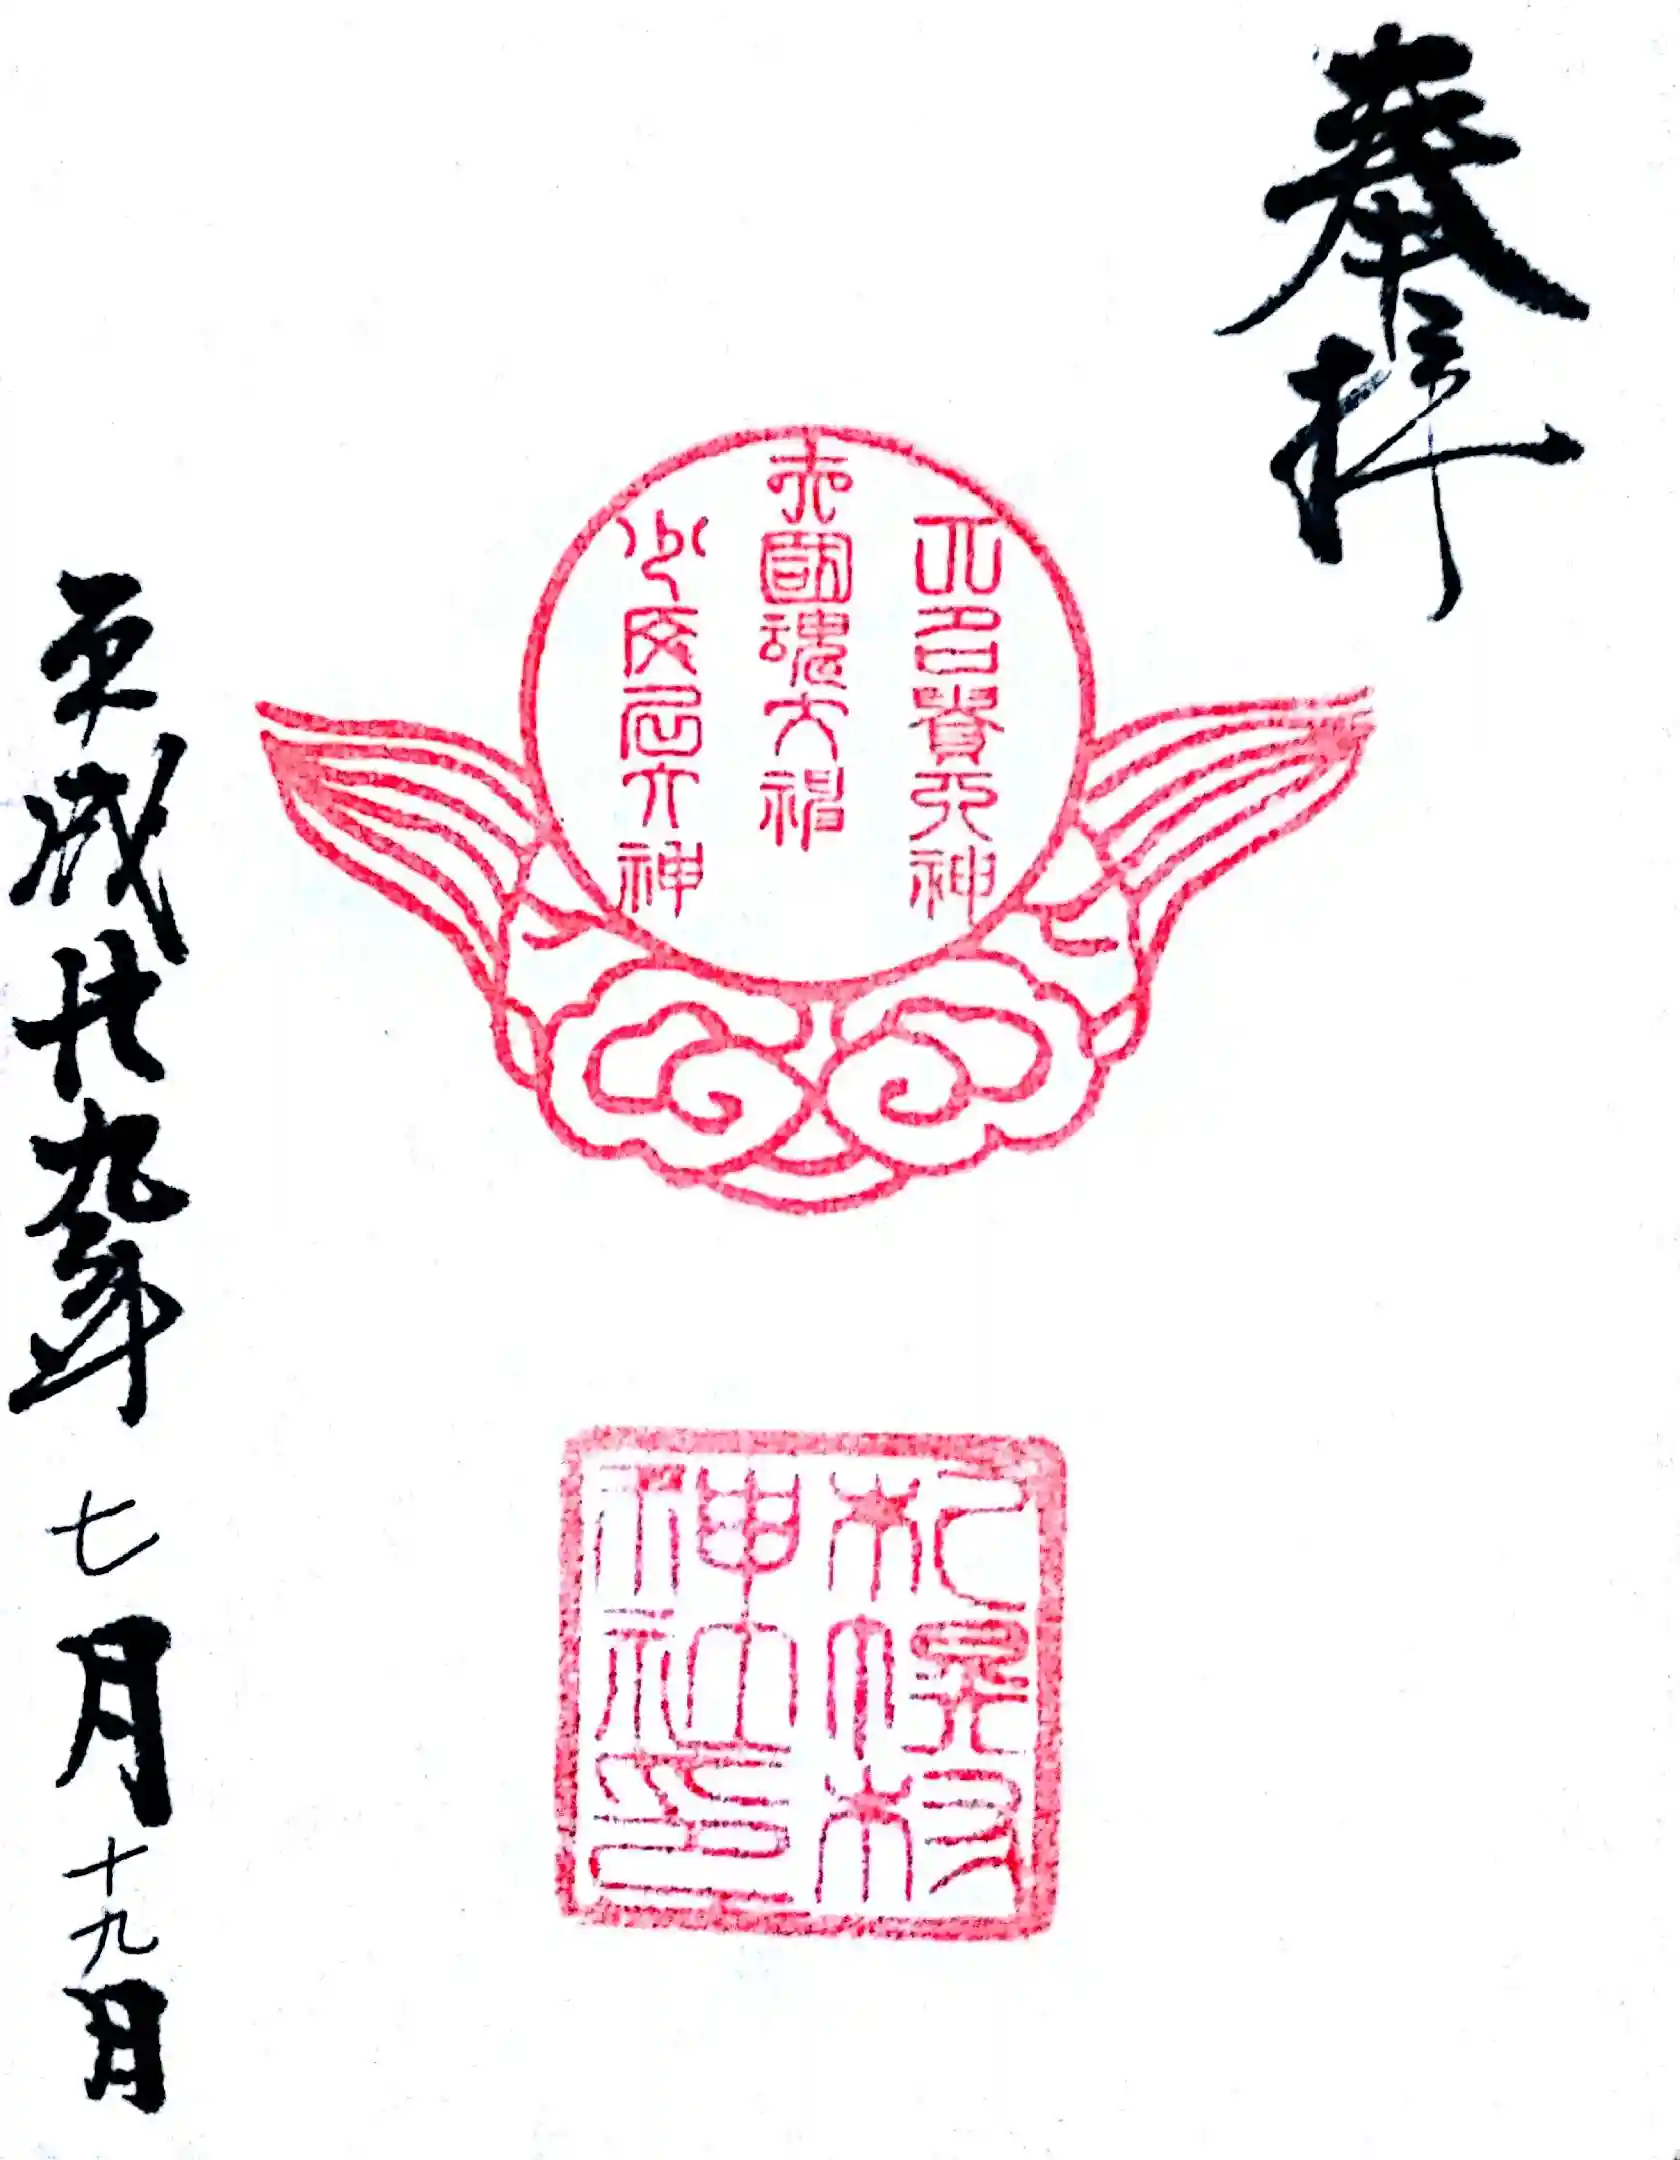 奉拝
大名貴大神
大國魂大神
少彦名大神
札幌村
神社印
平成廿九年七月十九日